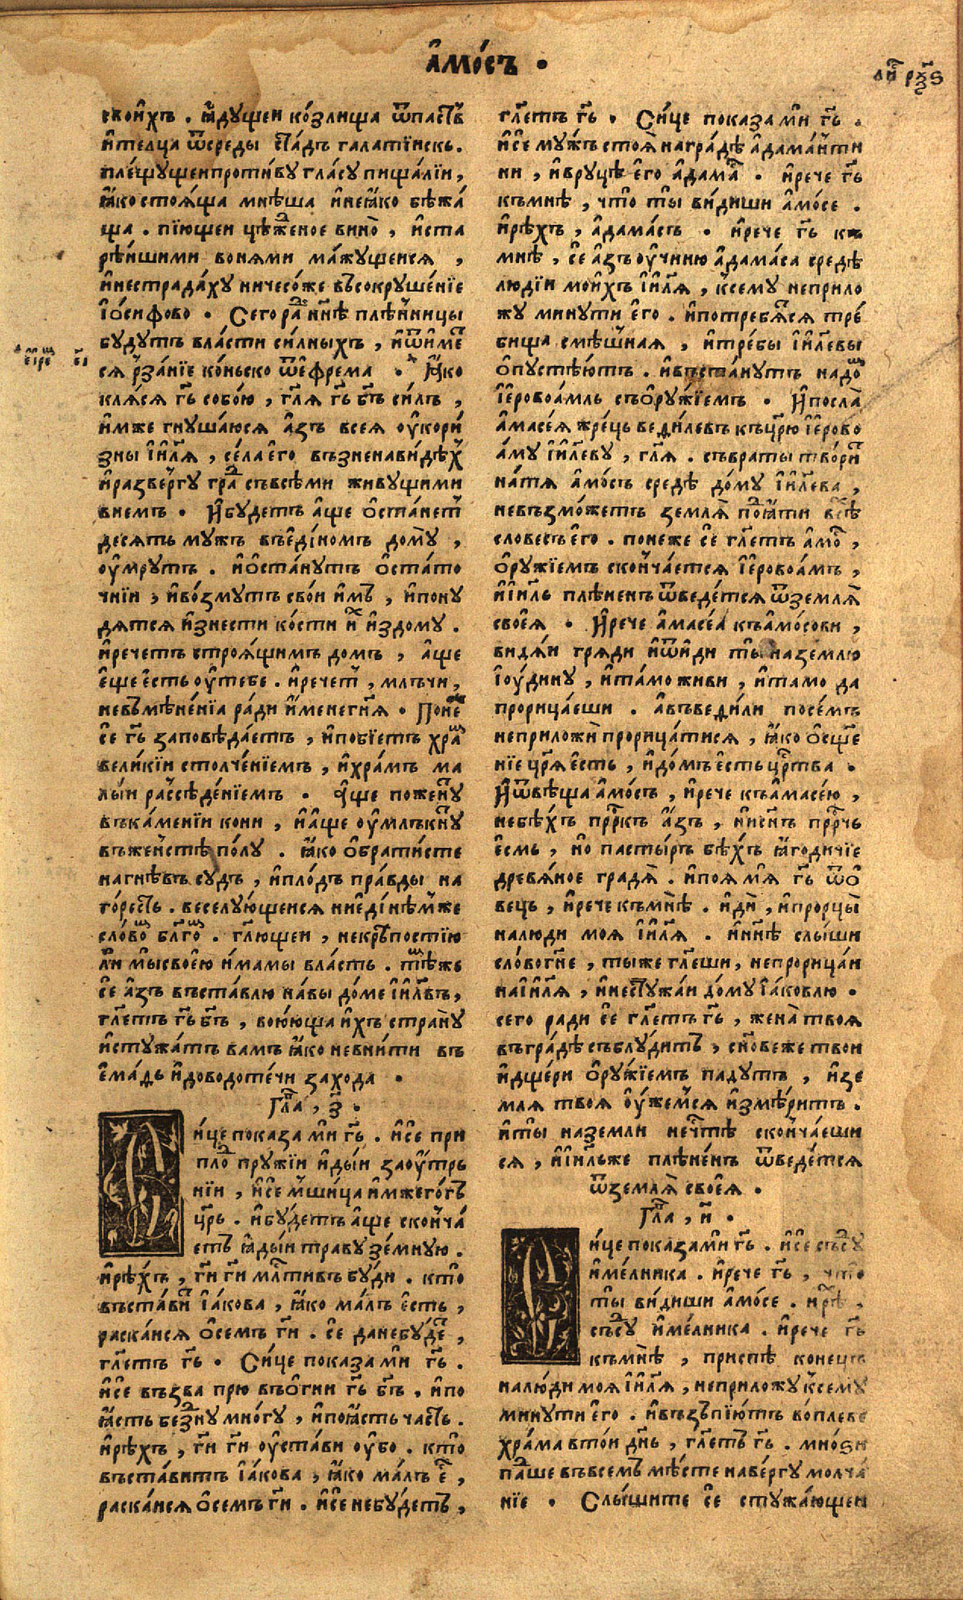 а҆мо́съ ·
свои́хъ . ꙗ҆дꙋщеи ко́злища ѿпаⷭ҇твъ
и҆телца ѿсреды стадъ галатїискъ.
плещꙋщеипроти́вꙋ гла́сꙋ пища́лїи,
ꙗ҆костоꙗ́ща мнѣ́ша и҆неꙗ҆ко бѣжа́
ща . пїю́щеи цѣже́ное вино̀ , и҆ста
рѣ́ишими вонѧми ма́жꙋщеисѧ ,
и҆нестрада́хꙋ ничесо́же въсокрꙋше́нїе
і҆о́сифово · Сего раⷣ ны́нѣ плѣ́нницы
бꙋ́дꙋтъ вла́сти си́лныхъ , и҆ѿи́меⷮ
сѧ рза́нїе ко́ньско ѿе҆фрема · Ꙗ҆ко
клѧ́сѧ гⷭ҇ь собо́ю , гл҃ѧ гⷭ҇ь бг҃ъ си́лъ ,
и҆́мже гнꙋша́юсѧ а҆́зъ всеѧ ѹ҆кори́
зны і҆и҃лѧ , се́ла е҆го̀ възненави́дѣхъ
и҆разве́ргꙋ граⷣ съвсѣ́ми живꙋ́щими
внемъ · И҆бꙋ́детъ а҆́ще ѡ҆ста́нетъ
де́сѧть мꙋ́жъ въе҆ди́номъ до́мꙋ ,
ѹ҆́мрꙋтъ . и҆ѡ҆ста́нꙋтъ ѡ҆ста́то
чнїи , и҆во́змꙋтъ свои и҆́мъ , и҆понꙋ
дѧтсѧ и҆знести ко́сти иⷯ и҆здомꙋ .
и҆речетъ строѧ́щимъ до́мъ , а҆́ще
е҆ще е҆́сть ѹ҆тебе . и҆речетъ , млъчи ,
невъмѣне́нїа ра́ди и҆́менегн҃ѧ · Поне́ⷤ
сѐ гⷭ҇ь заповѣ́даетъ , и҆побїетъ храⷨ
вели́кїи столче́нїемъ , и҆хра́мъ ма
лыи разсѣде́нїемъ · А҆ще поженꙋⷮ
въка́менїи кони , и҆а҆́ще ѹ҆млъкнꙋⷮ
въже́нстѣ по́лꙋ . ꙗ҆ко ѡ҆брати́сте
нагнѣ́въ сꙋ́дъ , и҆пло́дъ пра́вды на
го́ресть . веселꙋ́ющеисѧ ниедінѣ́мже
сло́воⷨ бл҃гоⷨ . гл҃ющеи , некрѣ́постїю
ли мы́своѐю и҆́мамы вла́сть . тѣ́мже
сѐ а҆́зъ въста́влю на́вы до́ме і҆и҃лвъ,
гл҃етъ гⷭ҇ь бг҃ъ , воюю́ща и҆́хъ странꙋ̀
и҆стꙋжа́тъ вамъ ꙗ҆ко невни́ти въ
е҆ма́ѳь и҆доводоте́чи за́хода ·
Глⷡ҇а , з҃ .
Си́це показа ми гⷭ҇ь . и҆сѐ при
плоⷣ прꙋжїи и҆ды́и заѹ҆́трь
нїи , и҆сѐ мшица и҆мжего́гъ
цр҃ь . и҆бꙋ́детъ а҆́ще сконча́
етъ ꙗ҆ды́и травꙋ зе́мнꙋю .
и҆рѣ́хъ , гн҃и гн҃и млⷭ҇тивъ бꙋди . кто̀
въста́виⷮ і҆а́кова , ꙗ҆ко ма́лъ е҆́сть ,
раска́исѧ ѡ҆семъ гн҃и . сѐ данебꙋ́деⷮ ,
гл҃етъ гⷭ҇ь · Си́це показа ми гⷭ҇ь .
и҆сѐ възва прю̀ въѡ҆гни гⷭ҇ь бг҃ъ , и҆по
ꙗ҆́сть бе́знꙋ мно́гꙋ , и҆поꙗ҆́сть ча́сть .
и҆рѣ́хъ , гн҃и гн҃и ѹ҆ста́ви ѹ҆́бо . кто̀
въста́витъ і҆а́кова , ꙗ҆ко ма́лъ еⷭ҇ ,
раска́исѧ ѡ҆семъ гн҃и . и҆сѐ небꙋ́детъ ,
гл҃етъ гⷭ҇ь · Си́це показа ми гⷭ҇ь .
и҆сѐ мꙋ́жъ стоѧ̀ награ́дѣ а҆дама́нти
ни , и҆врꙋцѣ е҆го а҆дамаⷭ · и҆рече гⷭ҇ь
къмнѣ̀ , что̀ ты̀ ви́диши а҆мо́се .
и҆рѣ́хъ , а҆дама́съ · и҆рече гⷭ҇ь къ
мнѣ̀ , сѐ а҆́зъ ѹ҆чиню а҆дама́са средѣ̀
лю́дїи мои́хъ і҆и҃лѧ , ксемꙋ неприло
жꙋ минꙋ́ти е҆го . и҆потребѧ́тсѧ тре́
бища смѣ́шнаѧ , и҆тре́бы і҆и҃левы
ѡ҆пꙋстѣ́ютъ . и҆въста́нꙋтъ надоⷨ
і҆еровоа́мль съѻ҆рꙋ́жїемъ · И҆посла̀
а҆масе́ѧ жре́цъ веди́левъ къцр҃ю і҆е́рово
а҆мꙋ і҆и҃левꙋ , гл҃ѧ . съвраты твори́ⷮ
на́тѧ а҆мо́съ средѣ̀ до́мꙋ і҆и҃лева ,
невъзмо́жетъ землѧ̀ поⷣꙗти всѣ
словесъ е҆го . понеже сѐ гл҃етъ а҆моⷭ ,
ѻ҆рꙋ́жїемъ сконча́етсѧ і҆еровоа́мъ ,
и҆і҆и҃ль плѣненъ ѿведе́тсѧ ѿземлѧ̀
своеѧ̀ · И҆рече а҆масе́а къа҆мо́сови ,
видѧ́и грѧди и҆ѿи́ди ты̀ наземлю
і҆ꙋ́динꙋ , и҆та́мо живи , и҆тамо да
прорица́еши . а҆въведи́ли посе́мъ
неприложѝ прорица́тисѧ , ꙗ҆ко ѡ҆сще
нїе цр҃ѧ е҆сть , и҆до́мъ е҆сть црⷭ҇тва .
И҆ѿвѣща а҆мо́съ , и҆рече къа҆масе́ю ,
небѣ́хъ прⷪ҇ркъ а҆́зъ , ни҆сн҃ъ прⷪ҇рчь
е҆смь , но пасты́рь бѣ́хъ ꙗ҆́годичїе
древѧ́ное градѧ̀ . и҆поѧ мѧ гⷭ҇ь ѿо
ве́цъ , и҆рече къмнѣ̀ . и҆дѝ , и҆прорцы̀
налюди моѧ̀ і҆и҃лѧ . и҆ны́нѣ слы́ши
сло́вогн҃е , тыже гл҃еши , непрорица́и
наі҆и҃лѧ , и҆нестꙋжа́и до́мꙋ і҆а́ковлю .
сего ради сѐ гл҃етъ гⷭ҇ь , жена̀ твоѧ
въгра́дѣ съблꙋ́дитъ , сн҃овеже твои
и҆дще́ри ѻ҆рꙋ́жїемъ падꙋтъ , и҆зе
млѧ твоѧ ѹ҆́жемъсѧ и҆змѣ́ритъ .
и҆ты̀ наземли нечⷭ҇тѣ сконча́еши
сѧ , и҆і҆и҃льже плѣне́нъ ѿведе́тсѧ
ѿземлѧ̀ своеѧ̀ .
Глⷡ҇а , и҃ .
Си́це показа ми гⷭ҇ь . и҆сѐ съсꙋⷣ
и҆ме́лника . и҆рече гⷭ҇ь , что
ты̀ ви́диши а҆мо́се . и҆рѣⷯ ,
съсꙋⷣ и҆ме́лника . и҆рече гⷭ҇ь
къмнѣ̀ , приспѣ коне́цъ
налю́ди моѧ̀ і҆и҃лѧ , неприложꙋ ксемꙋ
минꙋти е҆го . и҆въз̾пїю́тъ во́плеве
хра́ма вто́и дн҃ь , гл҃етъ гⷭ҇ь . мно́ѕи
па́дше въвсе́мъ мѣ́сте наве́ргꙋ молча́
нїе · Слы́шите сѐ стꙋжа́ющеи